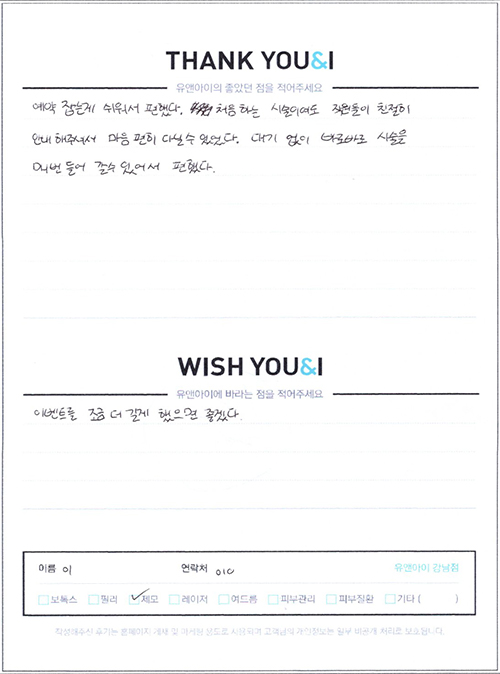 THANK YOU&I
유앤아이의 좋았던 점을 적어주세요
예약 잡는게 쉬워서 편했다. 처음하는 시술이여도 직원들이 친절히
안내해주셔서 마음 편히 다닐 수 있었다. 대기 없이 바로바로 시술을
매번 들어갈 수 있어서 편했다.
WISH YOU&I
유앤아이에 바라는 점을 적어주세요
이벤트를 조금 더 길게 했으면 좋겠다.
이름 이 연락처 010 유앤아이 강남점
보톡스 필러 제모 레이저 여드름 피부관리 피부질환 기타 ( )
작성해주신 후기는 홈페이지 게재 및 마케팅 용도로 사용되며 고객님의 개인정보는 일부 비공개 처리로 보호됩니다.